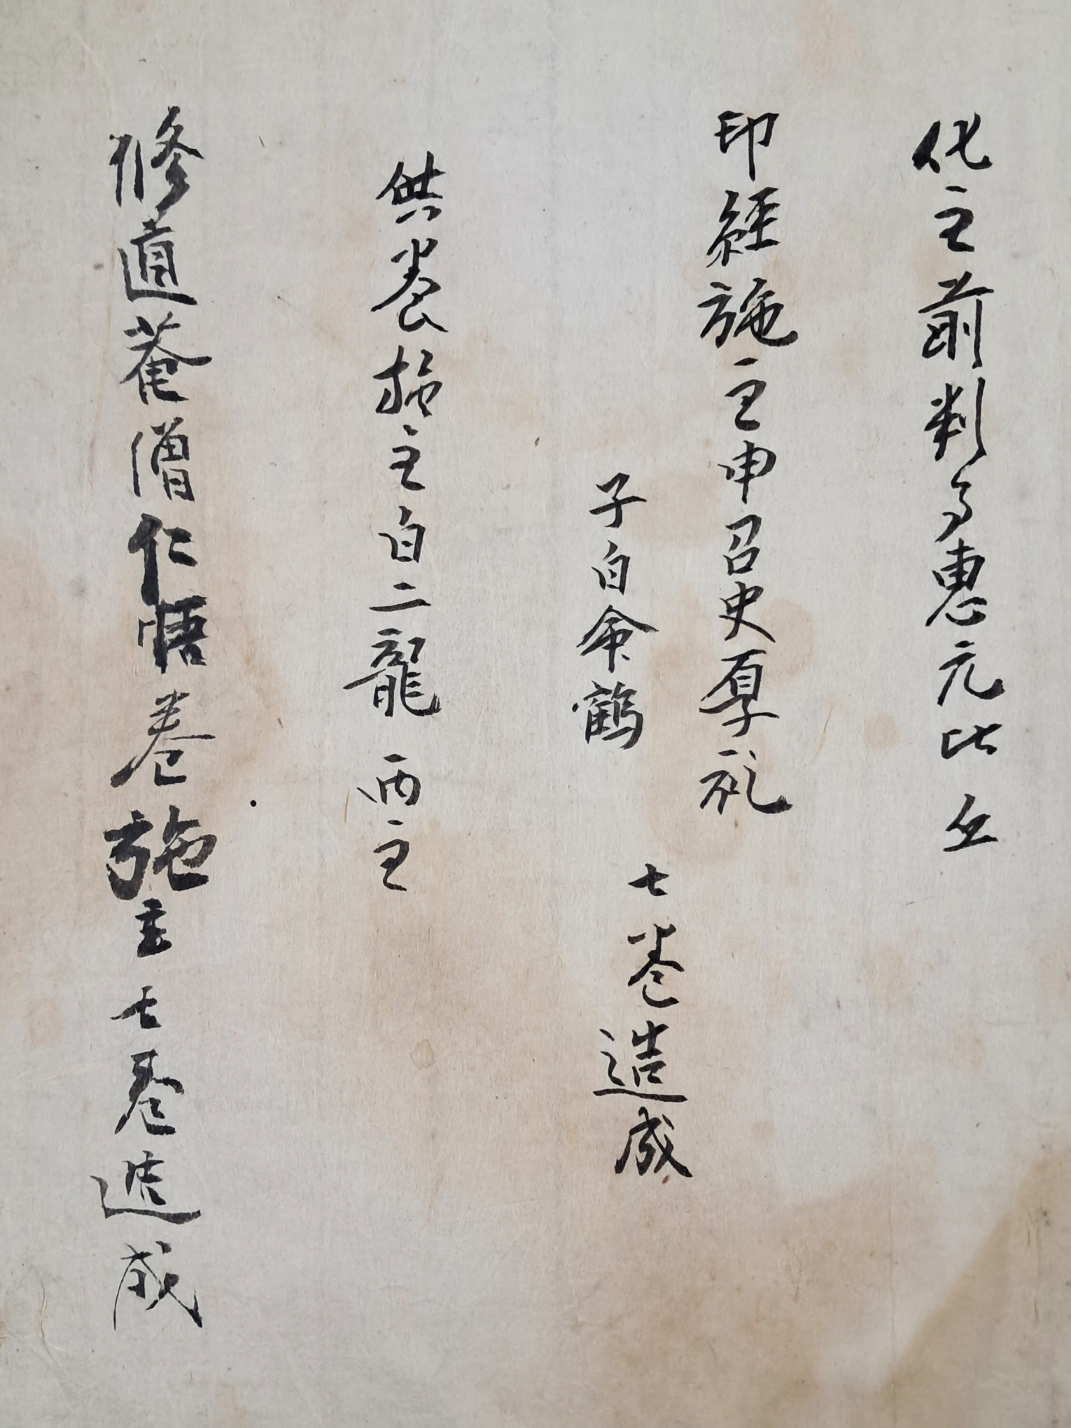 化主前判事惠元比丘
印經施主申召史厚礼
子白命鶴
七卷造成
供养施主白二龍两主
修道菴僧仁悟卷施主七卷造成